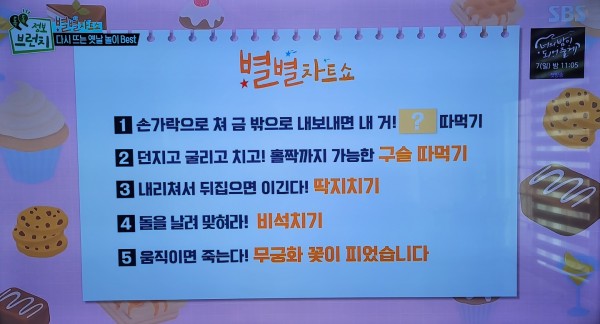 정보 브런치
별별차트쇼
다시 뜨는 옛날 놀이 Best
SBS
너의 밤이
되어 줄게
7(일) 밤 11:05
별별차트쇼
1 손가락으로 쳐 금 밖으로 내보내면 내 거! ? 따먹기
2 던지고 굴리고 치고! 홀짝까지 가능한 구슬 따먹기
3 내리쳐서 뒤집으면 이긴다! 딱지치기
4 돌을 날려 맞혀라! 비석치기
5 움직이면 죽는다! 무궁화 꽃이 피었습니다